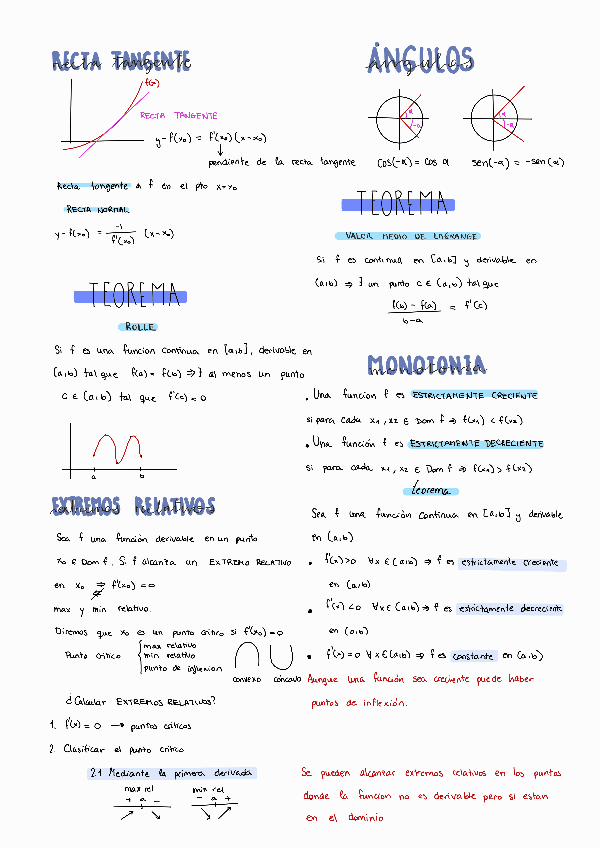 RECTA TANGENTE
f(x)
RECTA TANGENTE
y-f(x₀) = f'(x₀)(x-x₀)
pendiente de la recta tangente
Recta tangente a f en el pto x=x₀
RECTA NORMAL
y-f(x₀) = -1/f'(x₀) (x-x₀)
TEOREMA
ROLLE
Si f es una funcion continua en [a,b], derivable en
(a,b) tal que f(a) = f(b) ⇒ ∃ al menos un punto
c ∈ (a,b) tal que f'(c) = 0
a b
EXTREMOS RELATIVOS
Sea f una función derivable en un punto
x₀ ∈ Dom f. Si f alcanza un EXTREMO RELATIVO
en x₀ ⇒ f'(x₀) = 0
⇍
max y min relativo.
Diremos que x₀ es un punto critico si f'(x₀) = 0
Punto critico { max relativo
min relativo
punto de inflexion
convexo concavo
¿Calcular EXTREMOS RELATIVOS?
1. f'(x) = 0 → puntos criticos
2. Clasificar el punto critico
2.1 Mediante la primera derivada
max rel min rel
+ a - - a +
ÁNGULOS
α -α α -α
cos(-α) = cos α sen(-α) = -sen(α)
TEOREMA
VALOR MEDIO DE LAGRANGE
Si f es continua en [a,b] y derivable en
(a,b) ⇒ ∃ un punto c ∈ (a,b) tal que
f(b) - f(a) / b-a = f'(c)
MONOTONIA
• Una funcion f es ESTRICTAMENTE CRECIENTE
si para cada x₁, x₂ ∈ Dom f ⇒ f(x₁) < f(x₂)
• Una función f es ESTRICTAMENTE DECRECIENTE
si para cada x₁, x₂ ∈ Dom f ⇒ f(x₁) > f(x₂)
teorema
Sea f una función continua en [a,b] y derivable
en (a,b)
• f'(x) > 0 ∀x ∈ (a,b) ⇒ f es estrictamente creciente
en (a,b)
• f'(x) < 0 ∀x ∈ (a,b) ⇒ f es estrictamente decreciente
en (a,b)
• f'(x) = 0 ∀x ∈ (a,b) ⇒ f es constante en (a,b)
Aunque una función sea creciente puede haber
puntos de inflexión.
Se pueden alcanzar extremos relativos en los puntos
donde la funcion no es derivable pero si estan
en el dominio